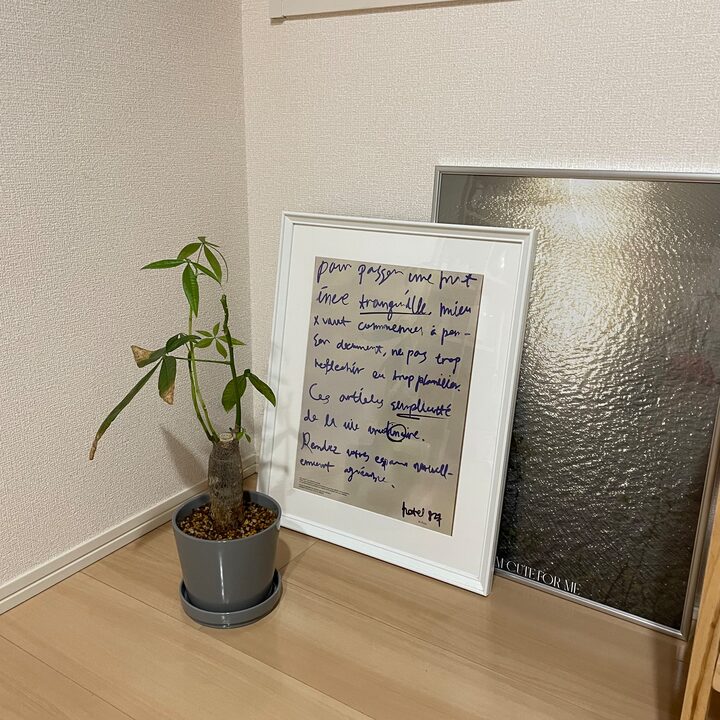 pour passer une just
inee tranquille, mieu
x vaut commencer à pen-
ser doucement, ne pas trop
reflechir ou trop planifier.
Ces articles simplicité
de la vie
Rendez votres espace naturell-
ement agréable.
hotel 827
M CUTE FOR ME